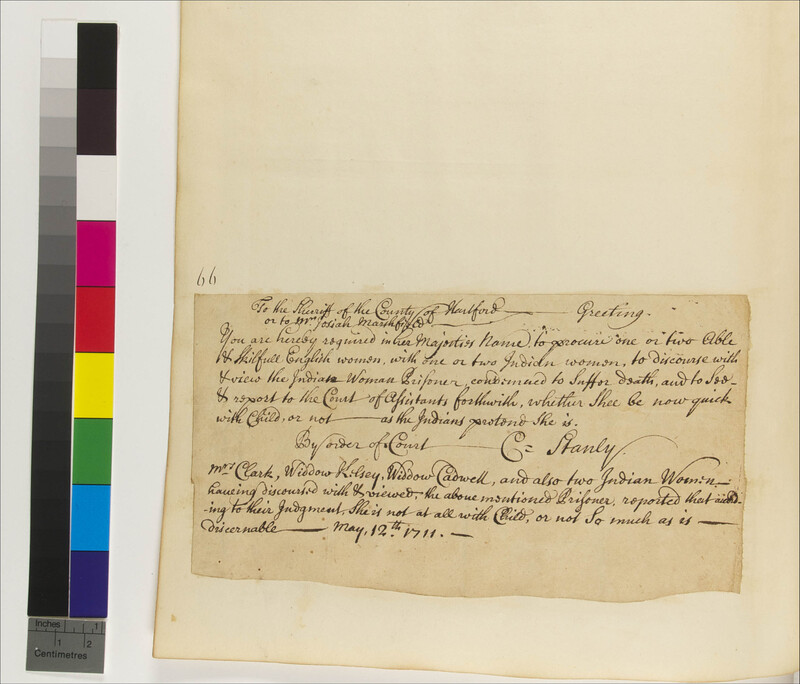 66
To the Sheriff of the County of Hartford — Greeting.
or to Mr. Josiah Marshfield
You are hereby required in her Majesties Name, to procure one or two Able
& skilfull English women, with one or two Indian women, to discourse with
& view the Indian Woman Prisoner, condemned to Suffer death, and to See
& report to the Court of Assistants forthwith, whether Shee be now quick
with Child, or not — as the Indians pretend She is.
By order of Court — C= Stanly.
Mrs Clark, Widdow Kelsey, Widdow Cadwell, and also two Indian Women —
haveing discoursed with & viewed, the above mentioned Prisoner, reported that accord
-ing to their Judgment, She is not at all with Child, or not So much as is —
discernable — May, 12th 1711. —
Inches 1
1 2
Centimetres